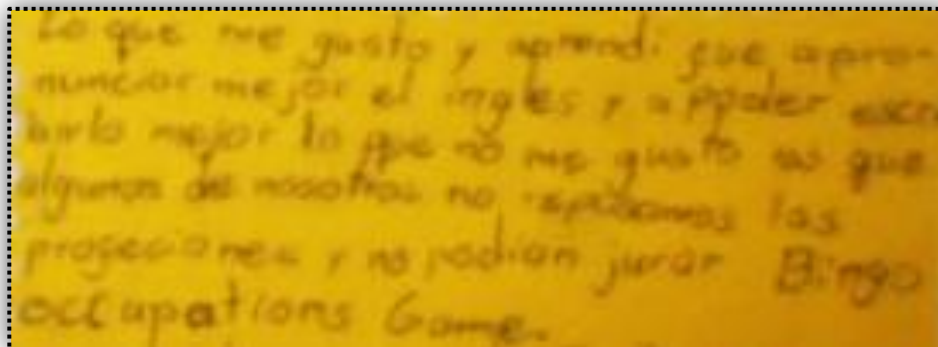 Lo que me gusto y aprendi fue a pro-
nunciar mejor el ingles y a ppoder escri
birlo mejor lo que no me gusto es que
algunos de nosotros no repasamos las
profeciones y no podian jurar Bingo
occupations Game.